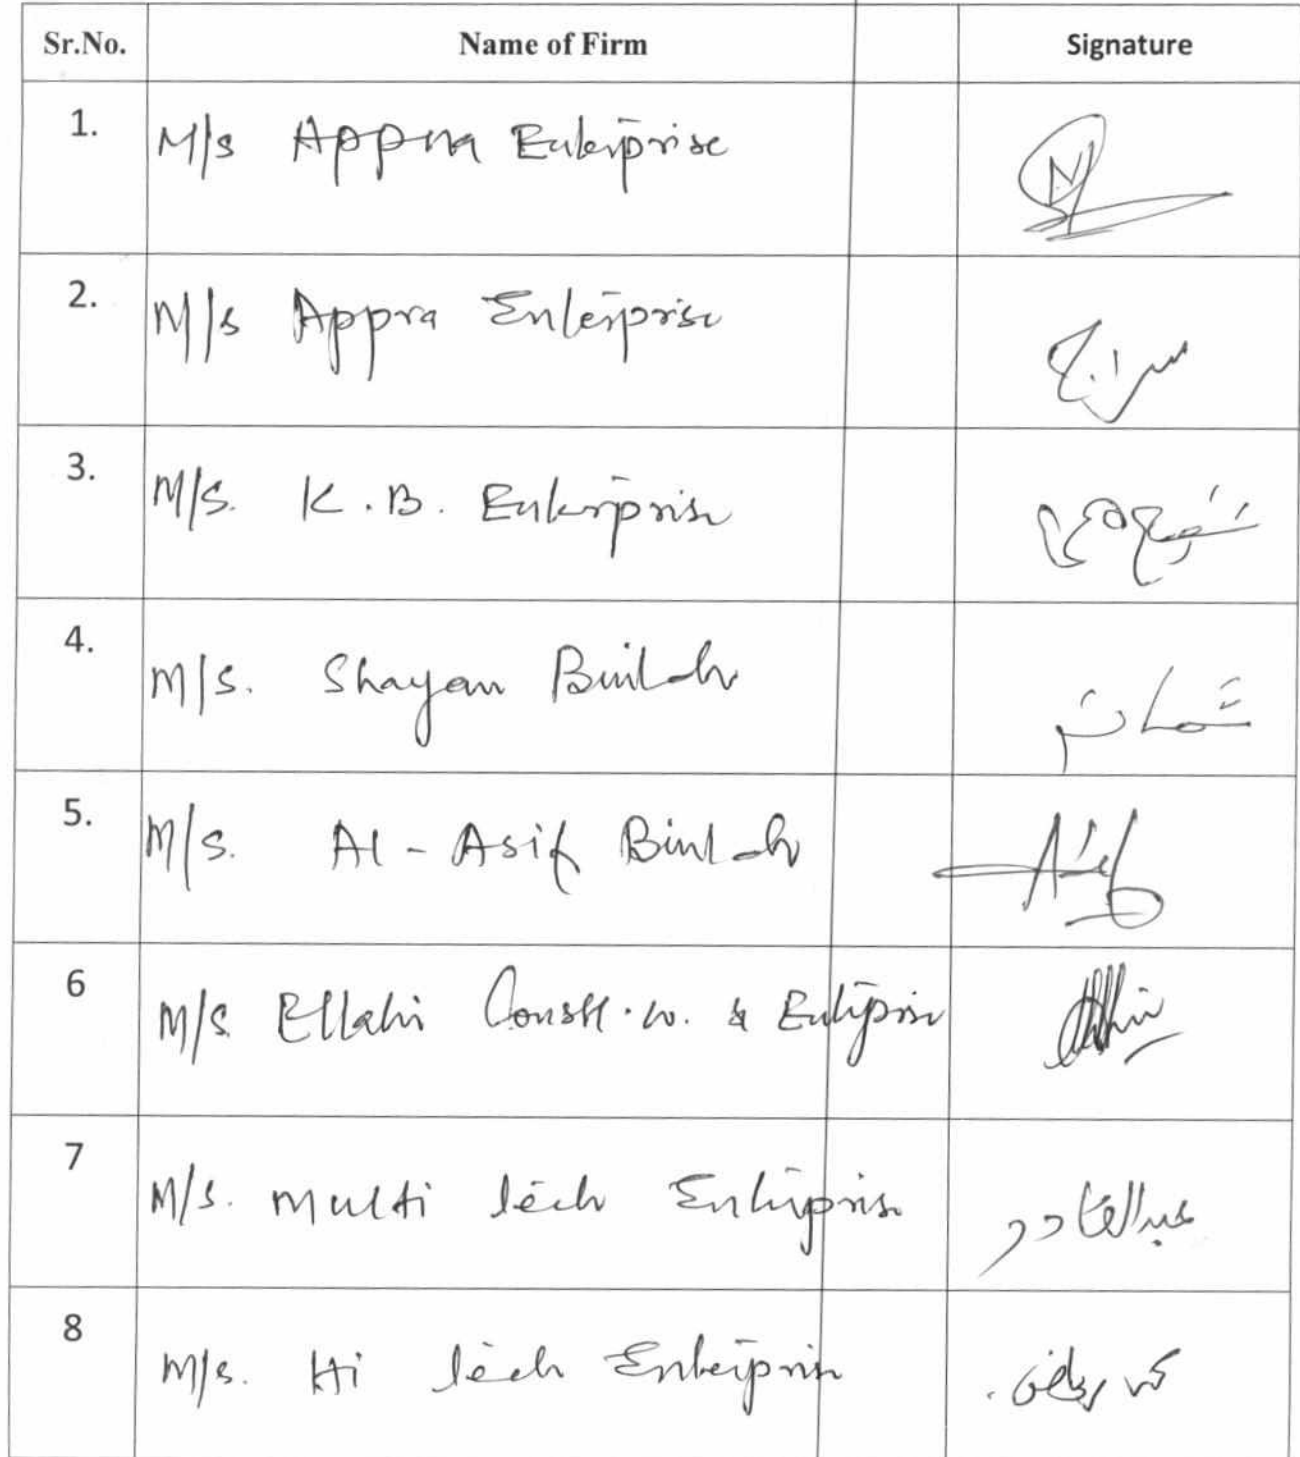 Sr.No. Name of Firm Signature
1. M/s Appna Enterprise
2. M/s Appra Enterprise سراج
3. M/S. K.B. Enterprise
4. M/S. Shayan Builder
5. M/S. Al-Asif Builder Asif
6 M/S. Ellahi Constt. co. & Enterprise
7 M/S. Multi Tech Enterprise عبدالقادر
8 M/s. Hi Tech Enterprise